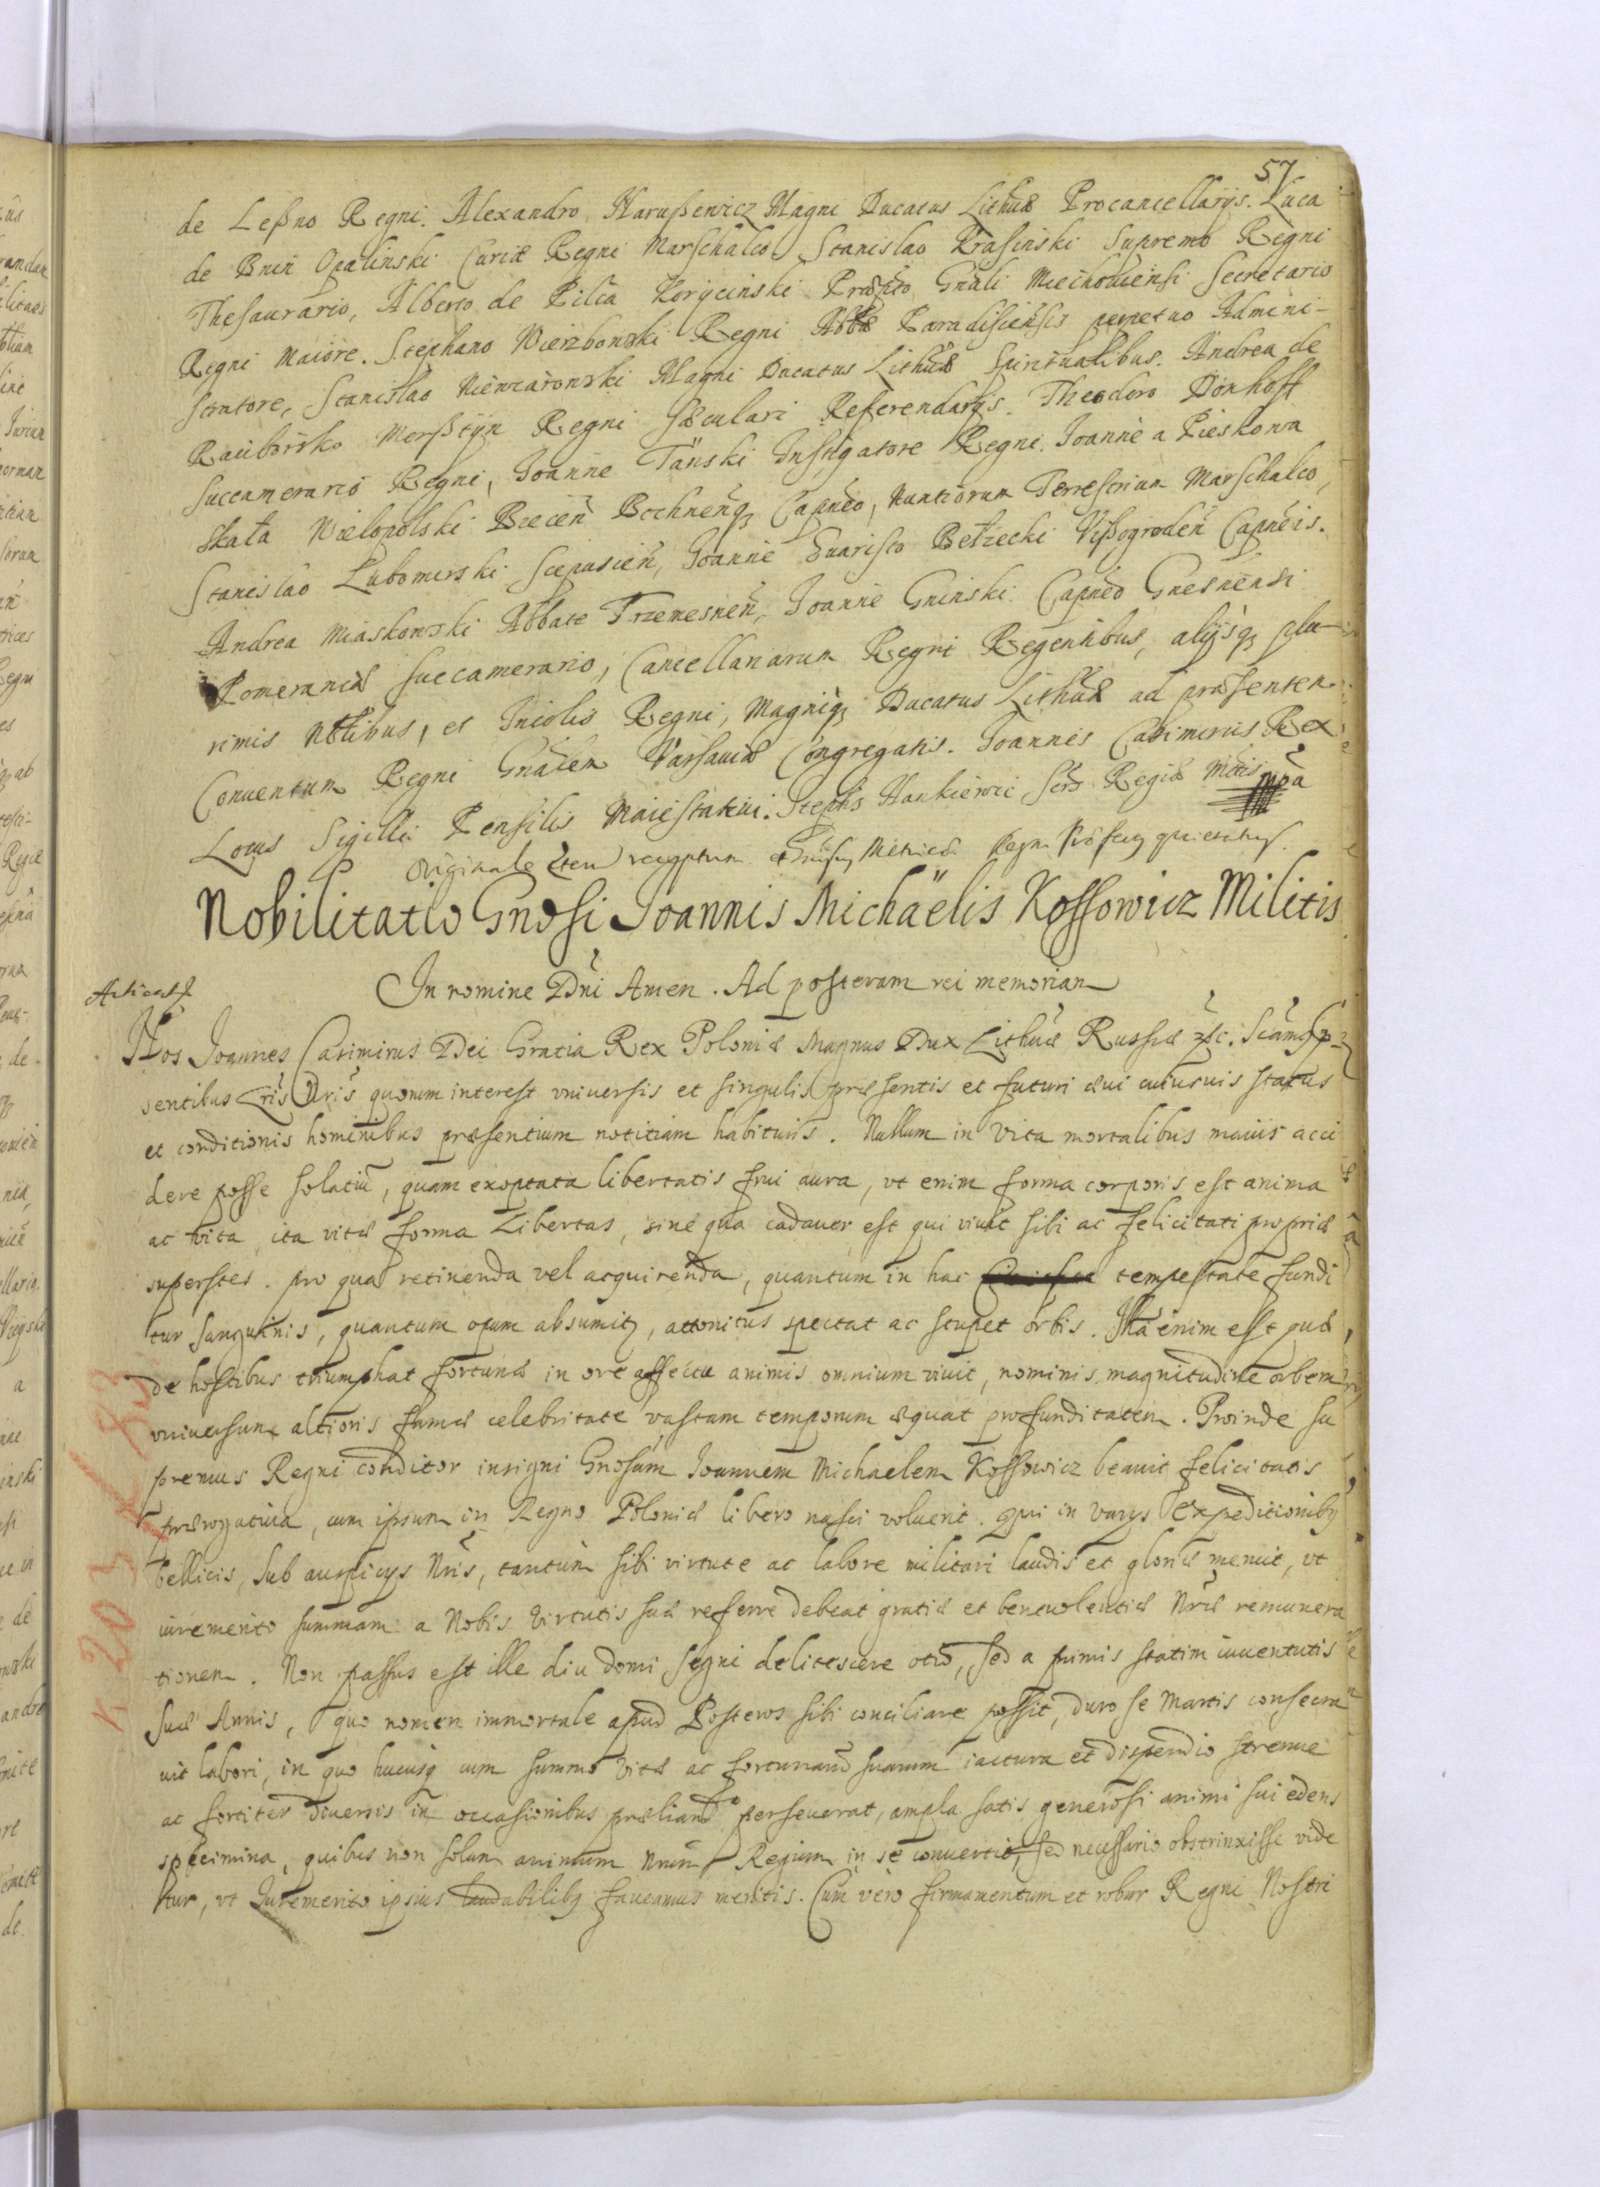 57
de Leßno Regni. Alexandro Narußewicz Magni Ducatus Lithuæ Procancellarijs. Luca
de Bnin Opalinski Curiæ Regni Marschalco, Stanislao Krasinski Supremo Regni
Thesaurario, Alberto de Pilca Korycinski Præposito Gnali Miechouiensi Secretario
Regni Maiore. Stephano Wierzbowski Regni Abbate Paradisiensis perpetuo Admini-
stratore, Stanislao Niewiarowski Magni Ducatus Lithuæ Spiritualibus. Andrea de
Raciborsko Morßtijn Regni Sæculari Referendarijs. Theodoro Dönhoff
Succamerario Regni, Joanne Tanski Instigatore Regni. Joanne a Pieskowa
Skała Wielopolski Biecen Bochnenq Capneo, Nuntiorum Terrestrium Marschalco,
Stanislao Lubomirski Scepusien, Joanne Euaristo Bełzecki Wißogroden Capneis.
Andrea Miaskowski Abbate Trzemesnen, Joanne Gninski Capneo Gnesnensi
Pomeraniæ Succamerario, Cancellariarum Regni Regentibus, alijsq plu-
rimis Nobilibus, et Incolis Regni, Magniq Ducatus Lithuæ ad præsentem
Conuentum Regni Gnalem Varsauiæ Congregatis. Joannes Casimirus Rex
Locus Sigilli Pensilis Maiestatici. Stephs Hankiewic Sers Regiæ Mttis mpa
Originale
Nobilitatio Gnosi Joannis Michaëlis Kossowicz Militis
In nomine Dni Amen. Ad posteram rei memoriam
Nos Joannes Casimirus Dei Gratia Rex Poloniæ Magnus Dux Lithuæ Russiæ
sentibus Lris Nris quorum interest vniuersis et singulis præsentis et futuri æui cuiusuis status
et conditionis hominibus præsentium notitiam habituris. Nullum in vita mortalibus maius acci
dere posse solatiu, quam exoptata libertatis frui aura, vt enim forma corporis est anima
ac vita, ita vitæ forma Libertas, sine qua cadauer est qui viuit sibi ac felicitati propriæ
superstes. pro qua retinenda vel acquirenda, quantum in hac tempestate fundi
tur sanguinis, quantum opum absumitq, attonitus spectat ac stupet orbis. Illa enim est quæ
de hostibus triumphat fortunæ in ore affectu animis omnium viuit, nominis magnitudine orbem
vniuersum altioris famæ celebritate vastam temporum æquat profunditatem. Proinde su
premus Regni conditor insigni Gnosum Joannem Michaelem Kossowicz beauit felicitatis
prærogatiua, cum ipsum in Regno Poloniæ libero nasci voluerit. qui in varijs expeditionibq
bellicis, sub auspicijs Nris, tantum sibi virtute ac labore militari laudis et gloriæ meruit, vt
iuremerito summam a Nobis virtutis suæ referre debeat gratiæ et beneuolentiæ Nræ remunera
tionem. Non passus est ille diu domi segni delitescere otio, sed a primis statim iuuentutis
suæ Annis, quo nomen immortale apud Posteros sibi conciliare possit, duro se Martis consecra
uit labori, in quo hucusq cum summo vitæ ac fortunarum suarum iactura et dispendio strenue
ac fortiter diuersis in occasionibus præliando perseuerat, ampla satis generosi animi sui edens
specimina, quibus non solum animum Nrum Regium in se conuertit, sed necessario obstrinxisse vide
tur, vt Iuremerito ipsius laudabilibq faueamus meritis. Cum vero firmamentum et robur Regni Nostri